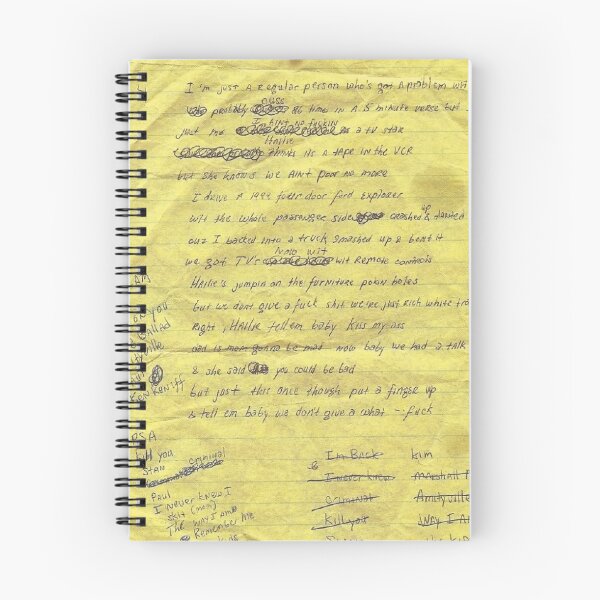 I'm just A Regular person who's got A problem wit
probably cuss 86 time in A 15 minute verse but I
just me I Aint no fuckin as a TV star
Hailie thinks its A tape in the VCR
but she knows we Aint poor no more
I drive A 1994 four door Ford Explorer
wit the whole passenger side crashed up & dented
cuz I backed into a truck, smashed up & bent it
we got TV's Now wit wit Remote controls
Hailie's jumpin on the furniture pokin holes
but we dont give a fuck shit we're just Rich white tra
Right, Hailie tell em baby kiss my ass
dad is mom gonna be mad now baby we had a talk
& she said you could be bad
but just this once though put a finger up
& tell em baby we don't give a what - fuck
you
Ballad
ville
Ken Keniff
PSA
Kill you
Stan criminal
Paul
I never knew I
skit (mom)
The way I am
Remember Me
I'm Back Kim
& I never knew Marshall M
Criminal Amityville
Kill you Way I Am